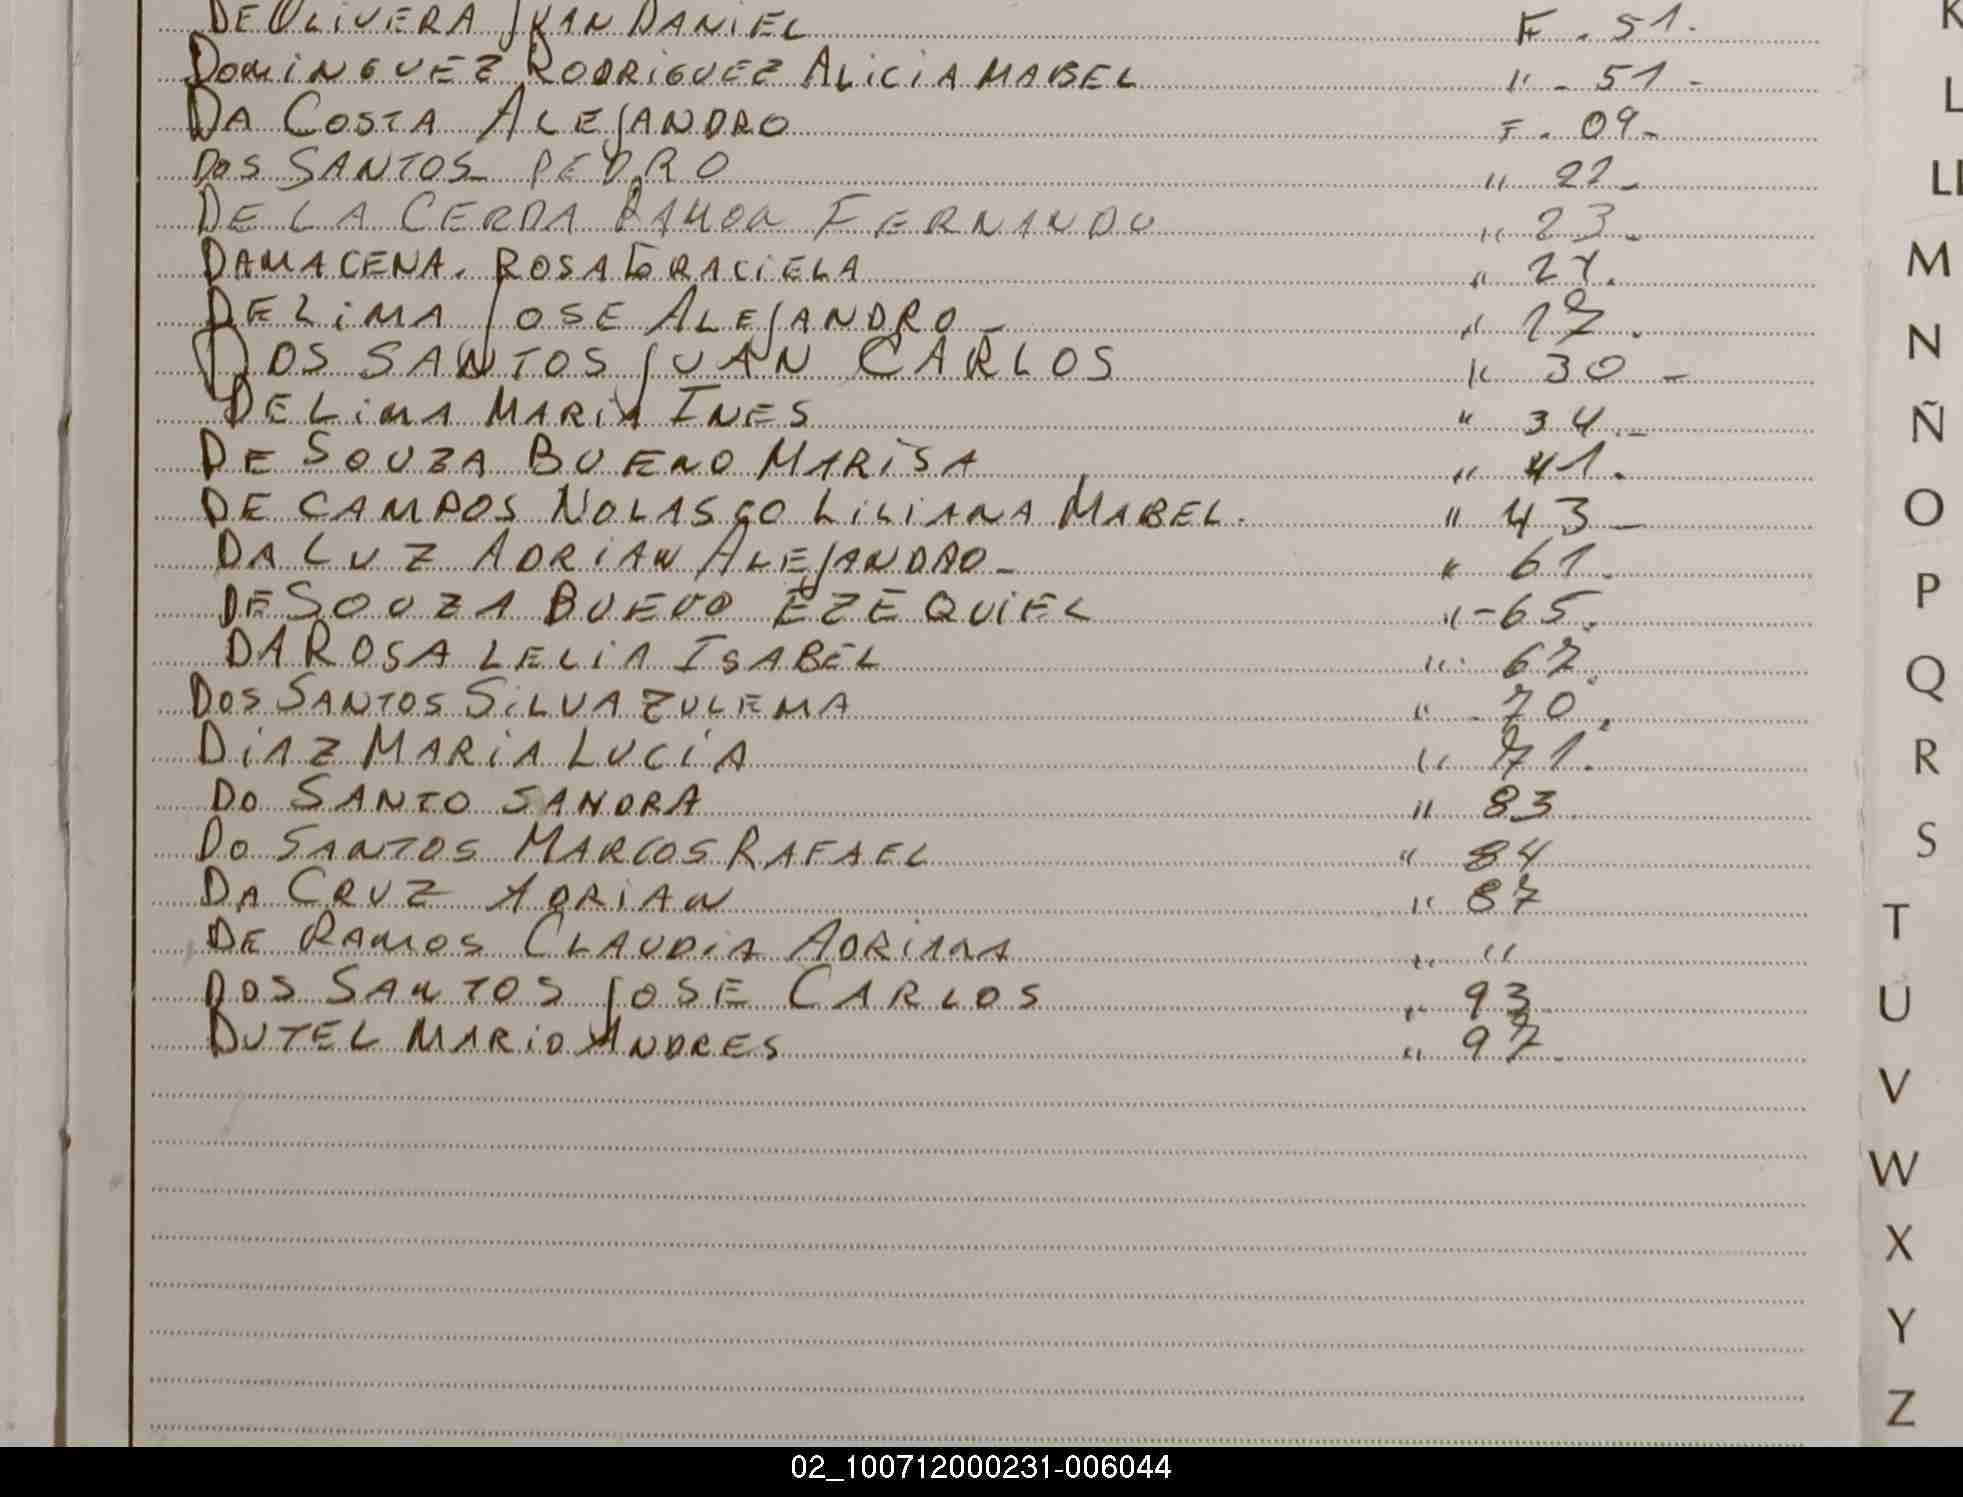 DE OLIVERA JUAN DANIEL F. 51.
DOMINGUEZ RODRIGUEZ ALICIA MABEL " - 51 -
DA COSTA ALEJANDRO F. 09-
DOS SANTOS PEDRO " 22-
DE LA CERDA RAMON FERNANDO " 23-
DAMACENA. ROSA GRACIELA "
DE LIMA JOSE ALEJANDRO - "
DOS SANTOS JUAN CARLOS " 30 -
DE LIMA MARIA INES " 34.-
DE SOUZA BUENO MARISA " 41.
DE CAMPOS NOLASCO LILIANA MABEL. " 43 -
DA LUZ ADRIAN ALEJANDRO - " 61.
DE SOUZA BUENO EZEQUIEL " - 65.
DA ROSA LELIA ISABEL " 67.
DOS SANTOS SILVA ZULEMA " - 70.
DIAZ MARIA LUCIA " 71.
DO SANTO SANDRA " 83
DO SANTOS MARCOS RAFAEL " 84
DA CRUZ ADRIAN " 87
DE RAMOS CLAUDIA ADRIANA " "
DOS SANTOS JOSE CARLOS " 93
DUTEL MARIO ANDRES " 97.
K
L
LL
M
N
Ñ
O
P
Q
R
S
T
U
V
W
X
Y
Z
02_100712000231-006044